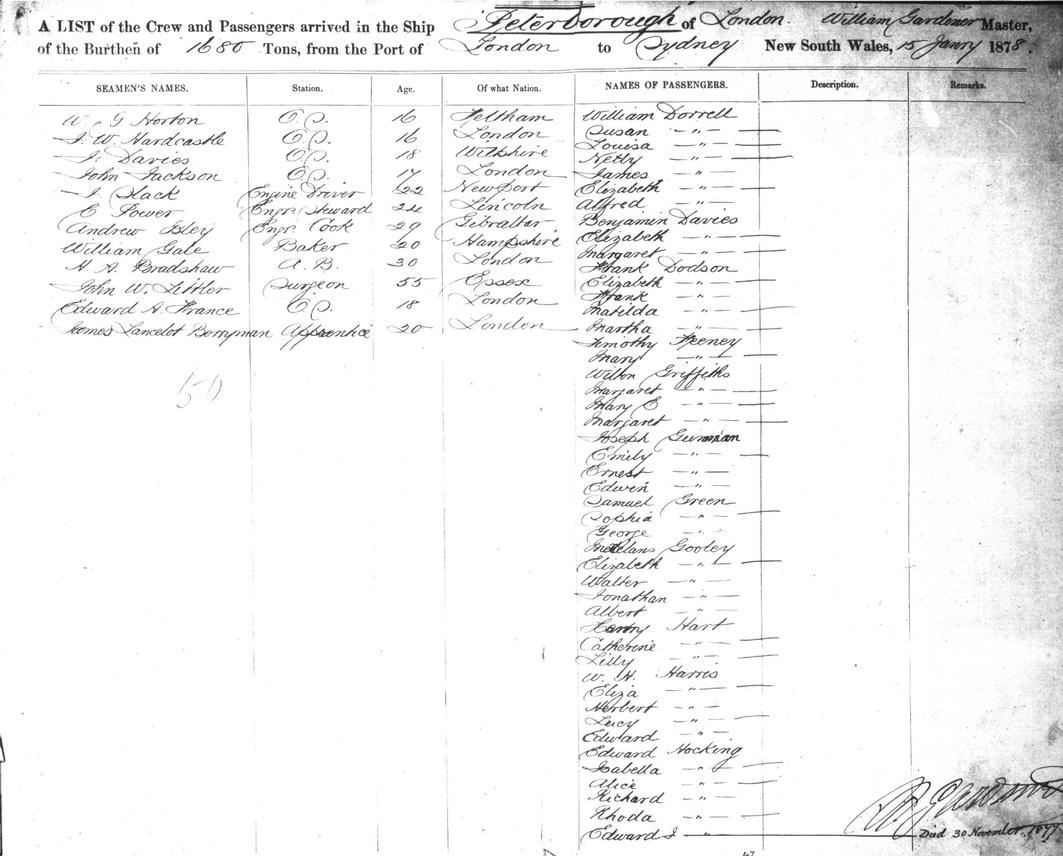 A LIST of the Crew and Passengers arrived in the Ship Peterborough of London. William Gardener Master,
of the Burthen of 1680 Tons, from the Port of London to Sydney New South Wales, 15 Janry 1878.
SEAMEN'S NAMES. Station. Age. Of what Nation. NAMES OF PASSENGERS. Description. Remarks.
W G Norton O.S. 16 Feltham
J. W. Hardcastle O.S. 16 London
J. Davies O.S. 18 Wiltshire
John Jackson O.S. 17 London
J. Slack Engine Driver 22 Newport
E Power Engr. Steward 24 Lincoln
Andrew Isley Engr. Cook 29 Gibraltar
William Gale Baker 20 Hampshire
H. A. Bradshaw A.B. 30 London
John W. Littler Surgeon 55 Essex
Edward A. France O.S. 18 London
James Lancelot Berryman Apprentice 20 London
50
William Dorrell
Susan —"—
Louisa —"—
Netty —"—
James
Elizabeth —"—
Alfred —"—
Benjamin Davies
Elizabeth —"—
Margaret —"—
Frank Dodson
Elizabeth —"—
Frank —"—
Matilda —"—
Martha —"—
Timothy Feeney
Mary —"—
Wilton Griffiths
Margaret —"—
Mary E —"—
Margaret —"—
Joseph
Emily —"—
Ernest —"—
Edwin —"—
Samuel Green
Sophia —"—
George —"—
Gooley
Elizabeth —"—
Walter —"—
Jonathan —"—
Albert —"—
Hart
Catherine —"—
Lilly —"—
W. H. Harris
Eliza —"—
Herbert —"—
Lucy —"—
Edward —"—
Edward Hocking
Isabella —"—
Alice —"—
Richard —"—
Rhoda —"—
Edward J —"—
Died 30 November 1877
47